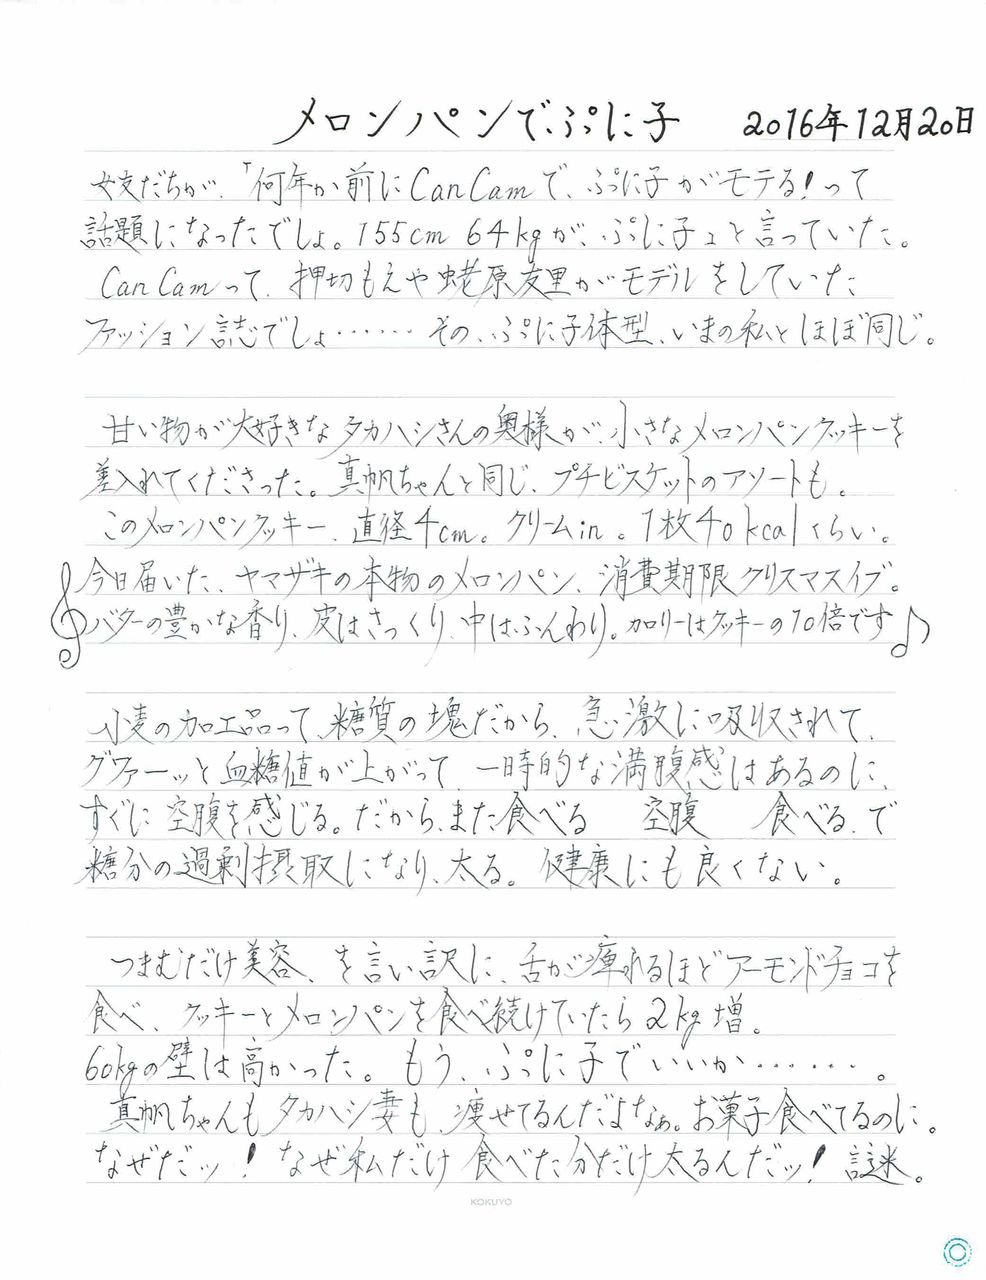 メロンパンでぷに子　2016年12月20日
女友だちが、「何年か前にCanCamで、ぷに子がモテる！って
話題になったでしょ。155cm 64kgが、ぷに子」と言っていた。
CanCamって、押切もえや蛯原友里がモデルをしていた
ファッション誌でしょ……その、ぷに子体型、いまの私とほぼ同じ。
甘い物が大好きなタカハシさんの奥様が、小さなメロンパンクッキーを
差入れてくださった。真帆ちゃんと同じ、プチビスケットのアソートも。
このメロンパンクッキー、直径4cm。クリームin。1枚40kcalくらい。
今日届いた、ヤマザキの本物のメロンパン、消費期限クリスマスイブ。
バターの豊かな香り、皮はさっくり、中はふんわり。カロリーはクッキーの10倍です♪
小麦の加工品って、糖質の塊だから、急激に吸収されて、
グワァーッと血糖値が上がって、一時的な満腹感はあるのに、
すぐに空腹を感じる。だから、また食べる　空腹　食べる、で
糖分の過剰摂取になり、太る。健康にも良くない。
つまむだけ美容、を言い訳に、舌が痺れるほどアーモンドチョコを
食べ、クッキーとメロンパンを食べ続けていたら2kg増。
60kgの壁は高かった。もう、ぷに子でいいか……。
真帆ちゃんもタカハシ妻も、痩せてるんだよなぁ。お菓子食べてるのに。
なぜだッ！なぜ私だけ食べた分だけ太るんだッ！謎。
KOKUYO